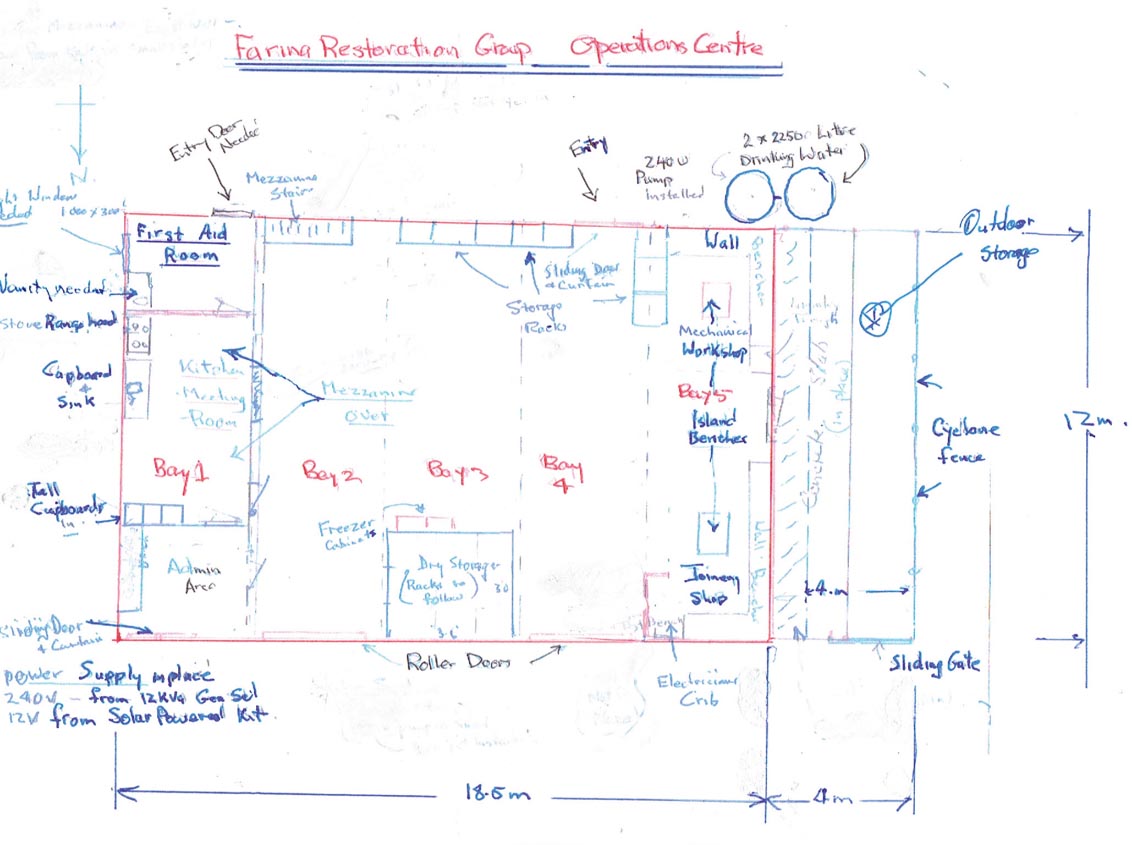 Farina Restoration Group Operations Centre
Entry Door
Needed
Mezzanine
Stair
Entry
240v
Pump
installed
2 x 2250 Litre
Drinking Water
N.
Window
1000 x 300
First Aid
Room
Wall
Benches
Outdoor
Storage
Vanity needed
Sliding Door
& Curtain
Storage
Racks
Stove Range hood
Mechanical
Workshop
Cupboard
+
Sink
Kitchen
Meeting
Room
Mezzanine
over
Bay 5
Island
Benches
Slab
(in place)
Concrete
Cyclone
fence
12m.
Bay 1
Bay 2
Bay 3
Bay
4
Tall
Cupboards
in
Freezer
Cabinets
Admin
Area
Dry Storage
(Racks to
follow)
30
3.6
Wall Bench
Joinery
Shop
4.m
Sliding Door
& Curtain
Roller Doors
Electricians
Crib
Sliding Gate
Power Supply in place
240v - from 12KVa Gen Set
12V from Solar Powered Kit.
18.5m
4m